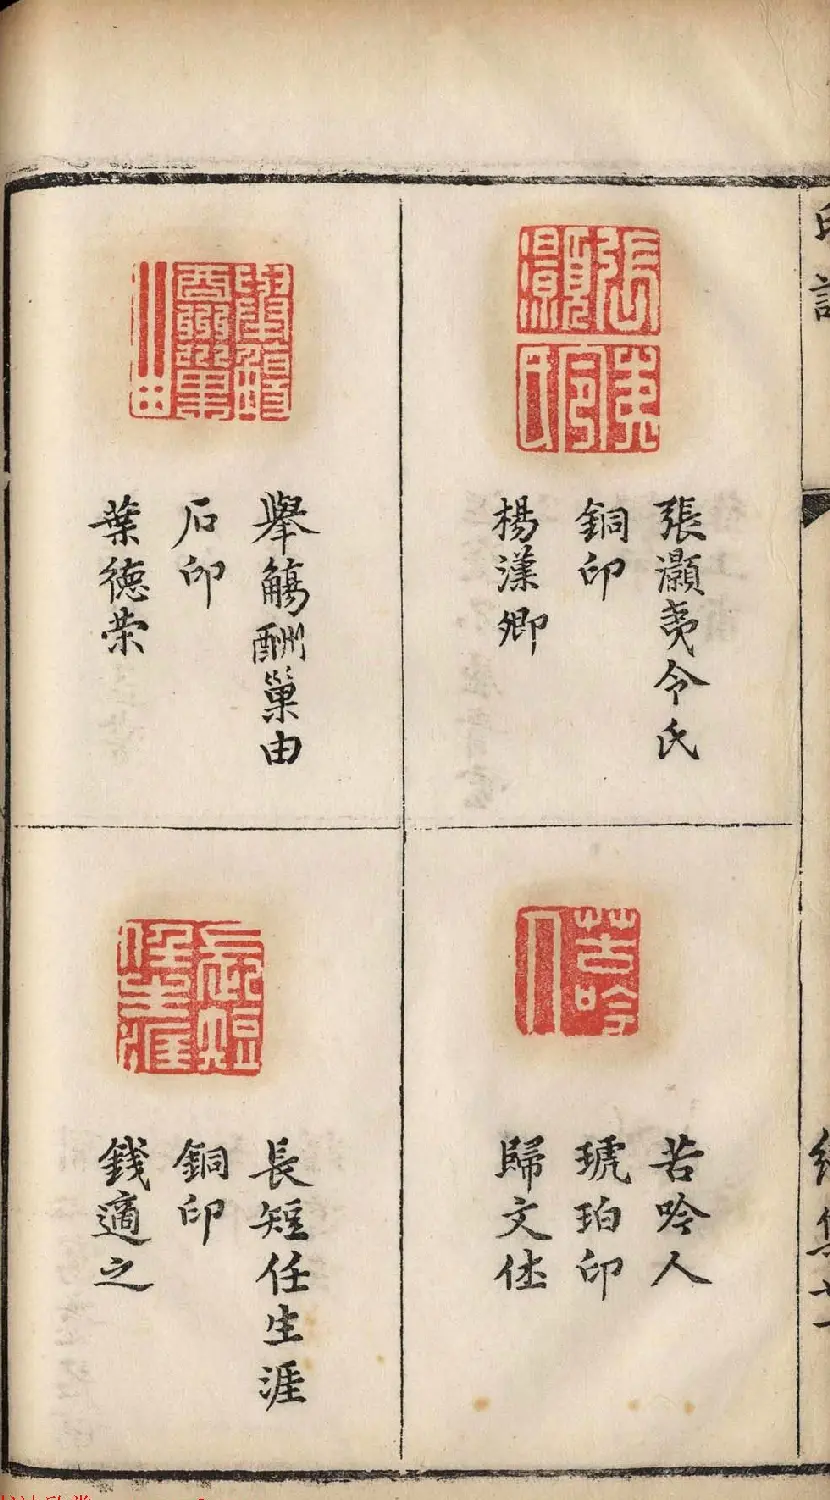 張灝夷令氏
銅印
楊漢卿
苦吟人
琥珀印
歸文休
舉觴酬巢由
石印
葉德榮
長短任生涯
銅印
錢適之